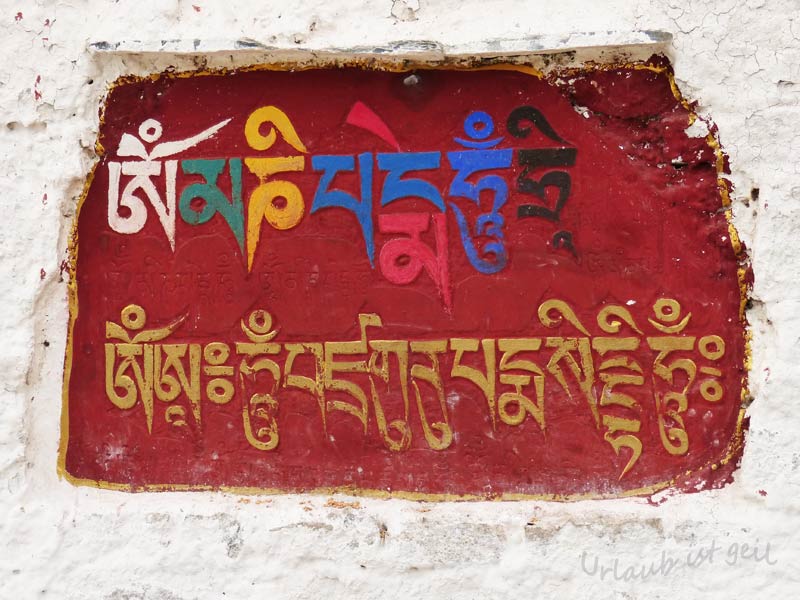 ཨོཾམཎིཔདྨེཧཱུྃཧྲཱི
ཨོཾཨཱཿཧཱུྃབཛྲགུརུཔདྨསིདྡྷིཧཱུྃ༔
Urlaub ist geil